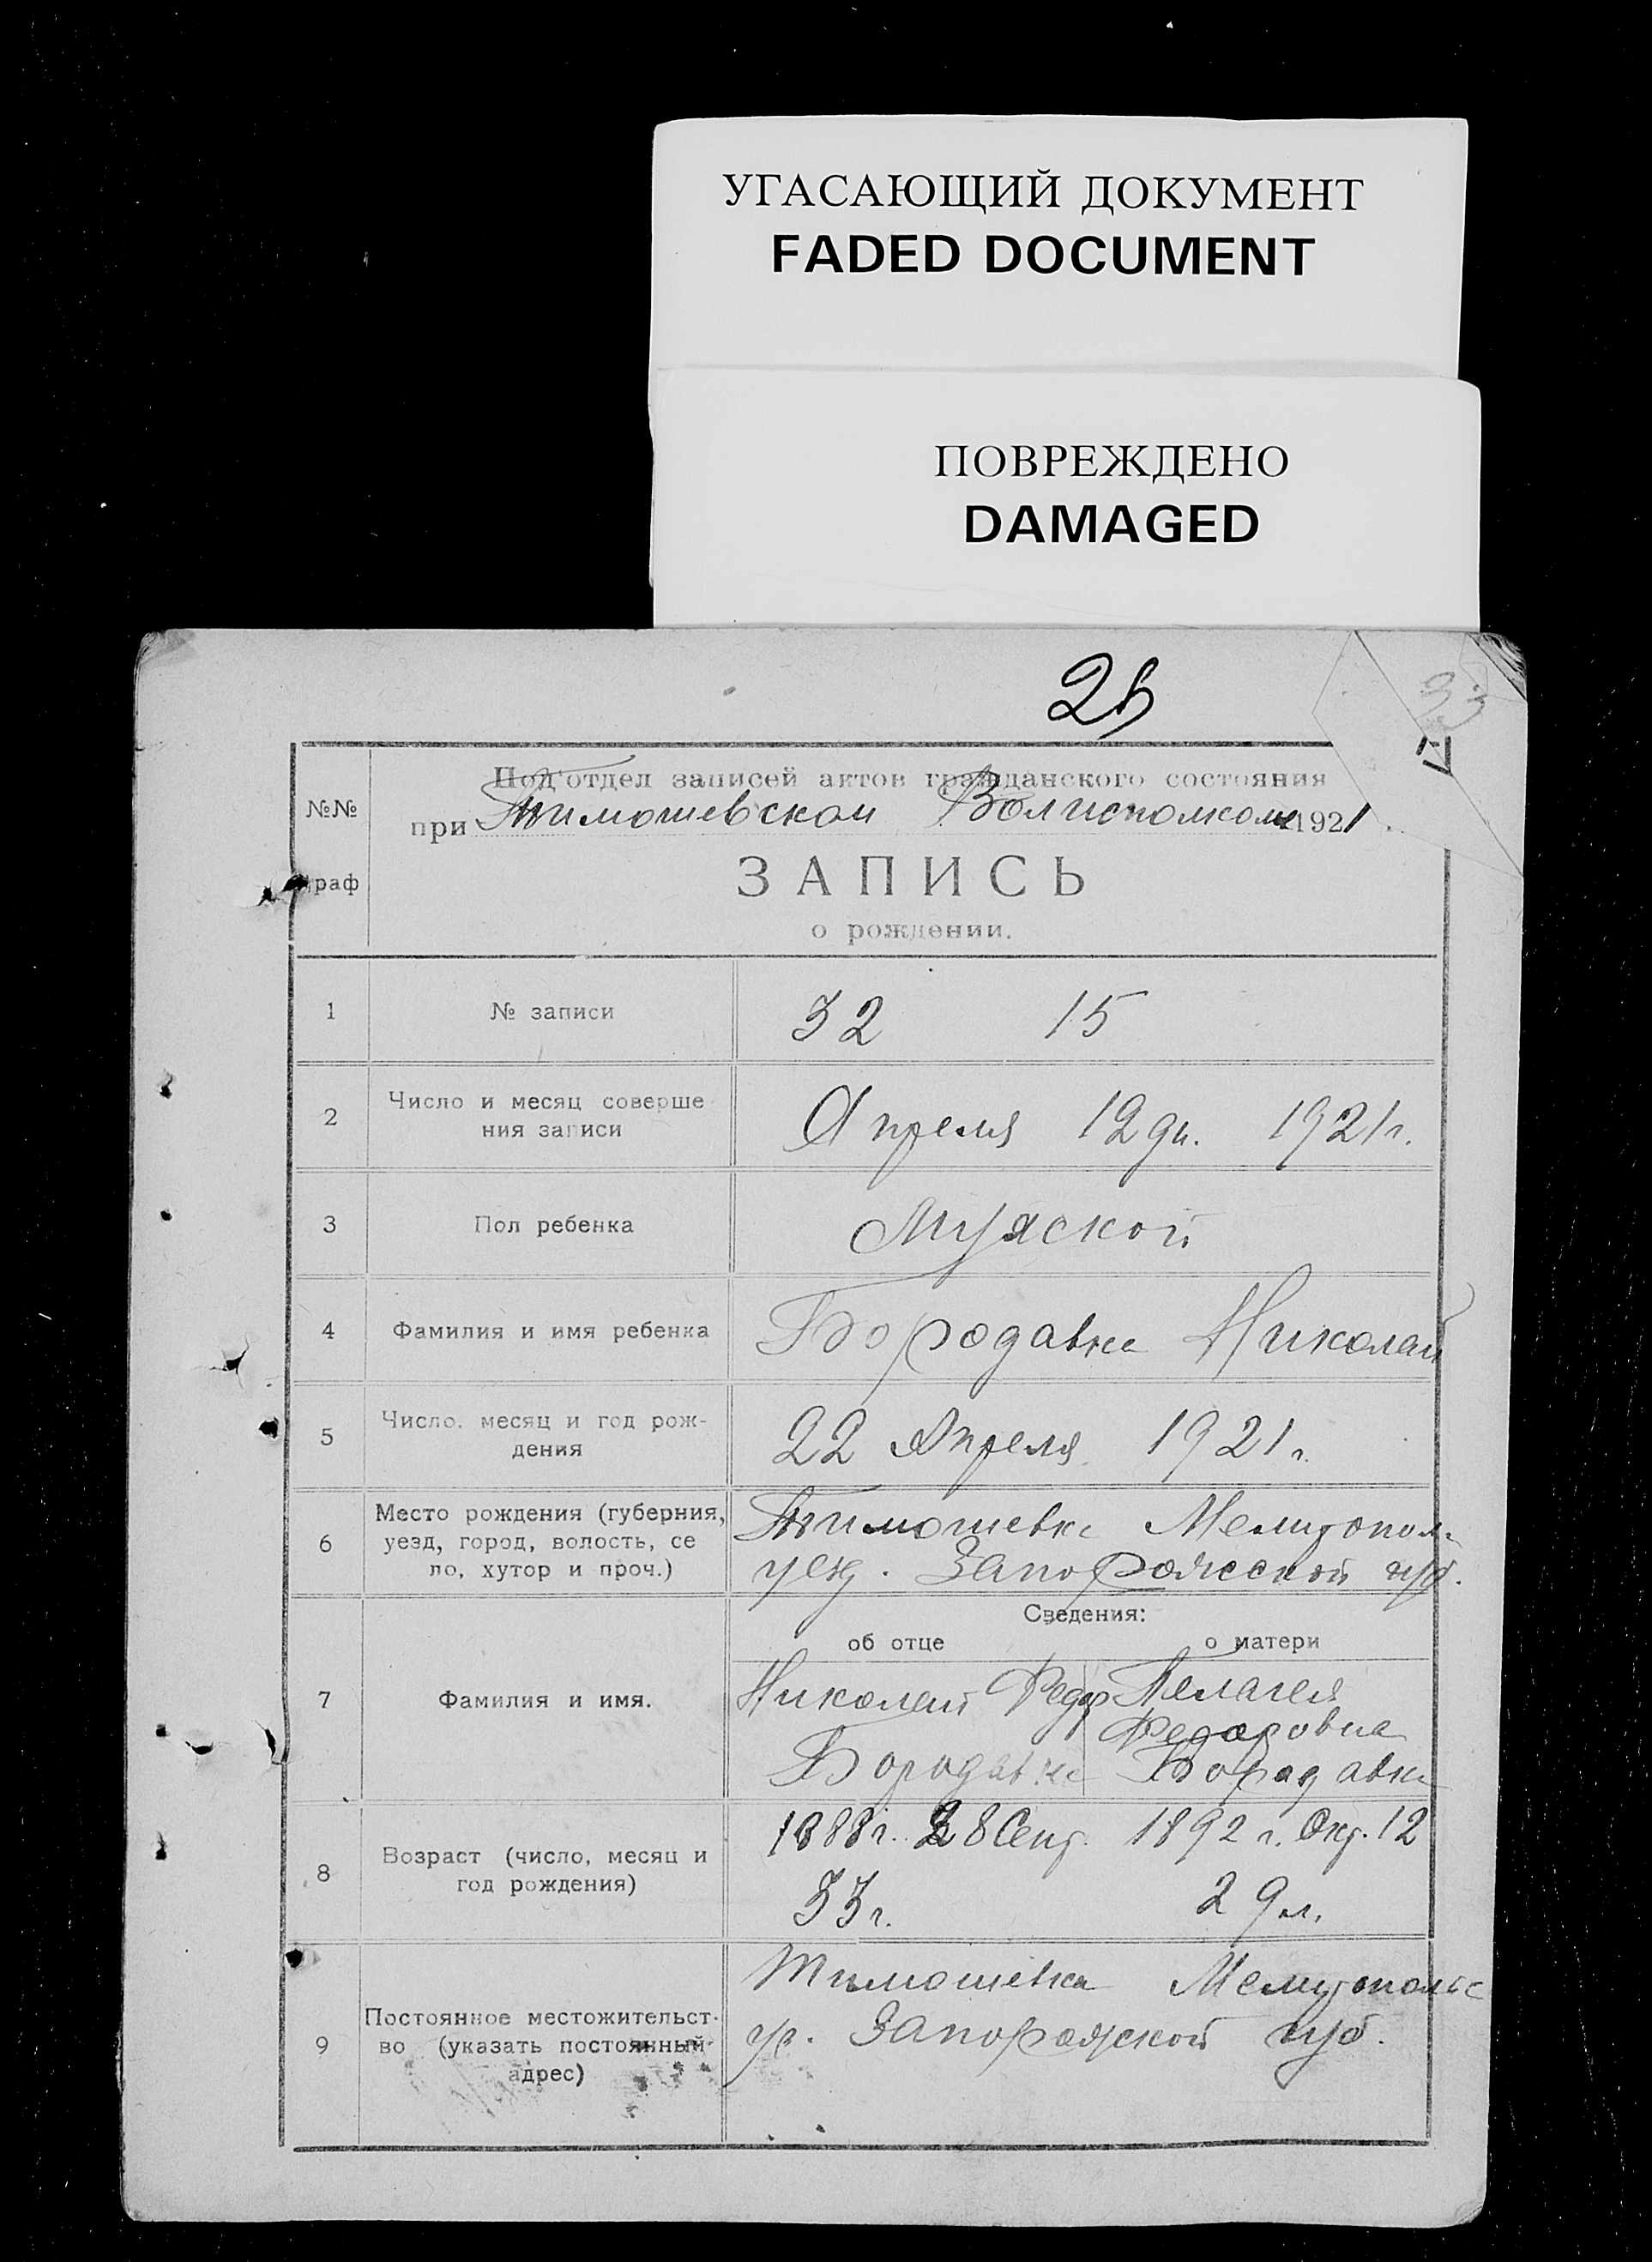 УГАСАЮЩИЙ ДОКУМЕНТ
FADED DOCUMENT
ПОВРЕЖДЕНО
DAMAGED
33
№№
граф
Под'отдел записей актов гражданского состояния
при Тимошевском Волисполкоме 1921
ЗАПИСЬ
о рождении.
1 № записи 32 15
2 Число и месяц соверше
ния записи Апреля 12 дн. 1921 г.
3 Пол ребенка Мужской
4 Фамилия и имя ребенка Бородавка Николай
5 Число. месяц и год рож-
дения 22 Апреля 1921 г.
6 Место рождения (губерния,
уезд, город, волость, се
ло, хутор и проч.)
Тимошевка Мелитопол.
уезд. Запорожской губ.
Сведения:
об отце о матери
7 Фамилия и имя.
Николай Федор Пелагея
Федоровна
Бородавка Бородавка
8 Возраст (число, месяц и
год рождения)
1888 г. 28 Сент. 1892 г. Окт. 12
33 г. 29 л.
9 Постоянное местожительст-
во (указать постоянный
адрес)
Тимошевка Мелитопольс
у. Запорожской губ.